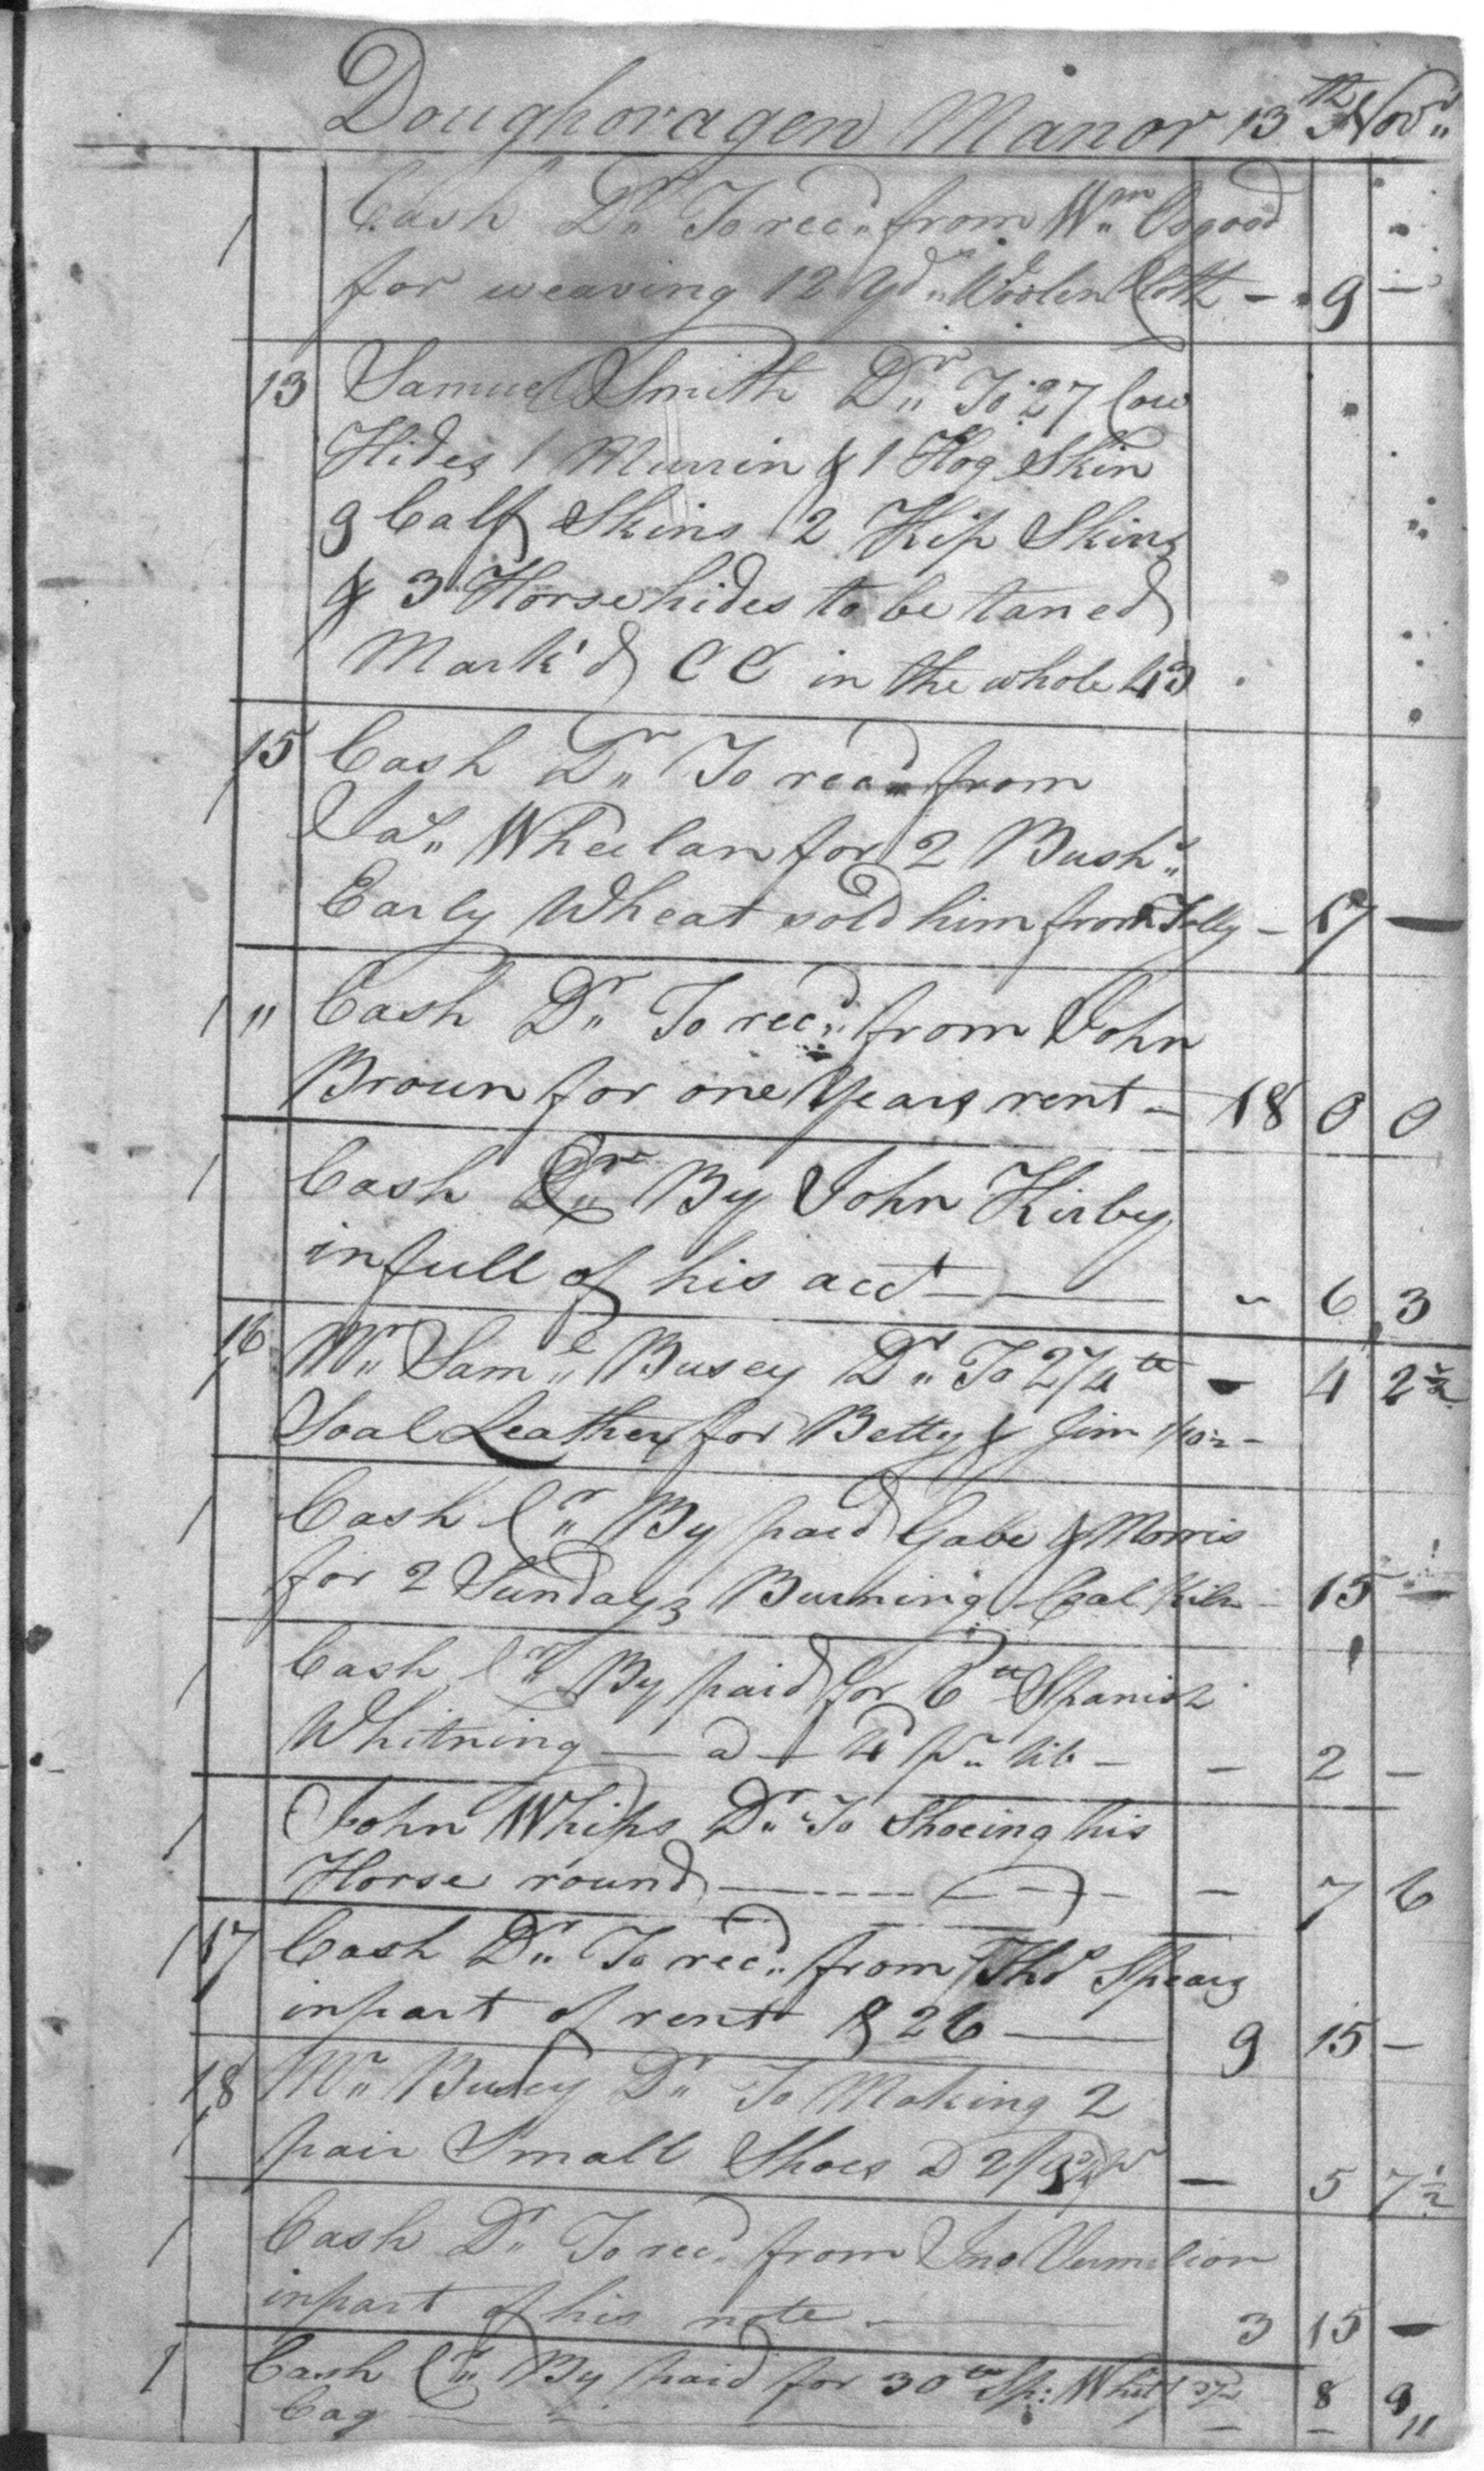 Doughoragen Manor 13th Novr
Cash Dr To recd from Wm Osgood
for weaving 12 Yds Woolen Cloth - 9 —
13 Samuel Smith Dr To 27 Cow
Hides 1 Murrin & 1 Hog Skin
9 Calf Skins 2 Kip Skins
& 3 Horse hides to be taned
Mark'd CC in the whole 43
15 Cash Dr To recd from
Jas Wheelan for 2 Bushs
Early Wheat sold him from Folly - 17 —
" Cash Dr To recd from John
Brown for one Years rent - 18 0 0
Cash Cr By John Kirby
in full of his acct — " 6 3
16 Mr Saml Busey Dr To 2¼ tt - 4 2½
Soal Leather for Betty & Jim 1/10½ -
Cash Cr By paid Gabe & Morris
for 2 Sundays Burning Coal Kiln - 15 —
Cash Cr By paid for 6 tt Spanish
Whitning — a — 4d pr lib - - 2 —
John Whips Dr To Shoeing his
Horse round — - 7 6
17 Cash Dr To recd from Thos Spears
in part of rent 1826 — 9 15 —
18 Mr Busey Dr To Making 2
pair Small Shoes a 2/9¾ pr — 5 7½
Cash Dr To recd from Jno Vermilion
in part of his note — 3 15 —
Cash Cr By paid for 30 tt Sp: Whitg 8 9
Cag — - - "